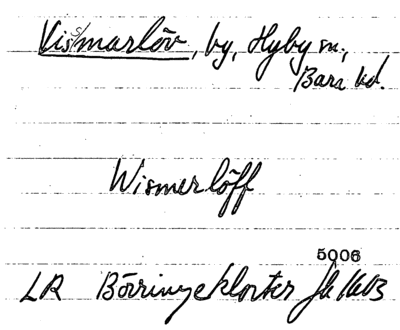 Vismarlöv, by, Hyby sn,
Bara hd.
Wismerlöff
5006
LR Börringekloster Jb 1603